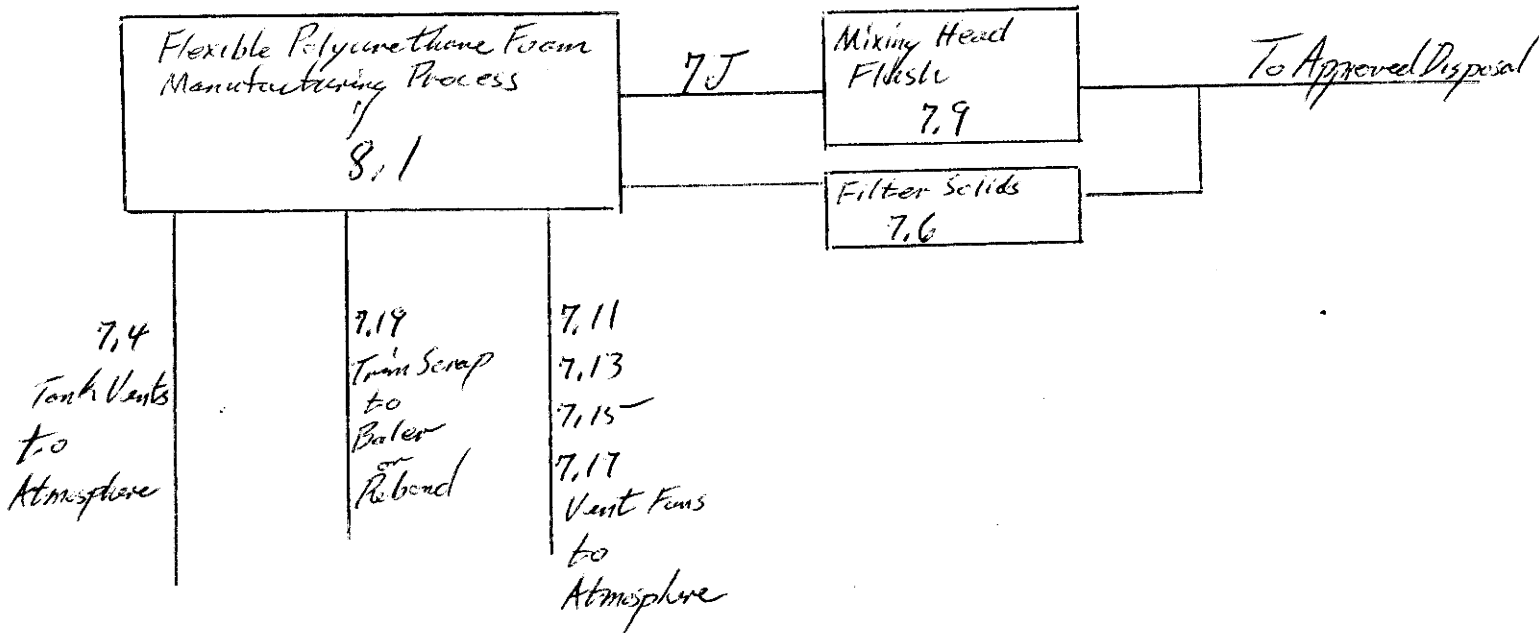 Flexible Polyurethane Foam
Manufacturing Process
8,1
7J
Mixing Head
Flush
7,9
To Approved Disposal
Filter Solids
7,6
7,4
Tank Vents
to
Atmosphere
7,19
Trim Scrap
to
Baler
or
Rebond
7,11
7,13
7,15
7,17
Vent Fans
to
Atmosphere